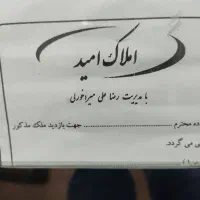 املاک امید
با مدیریت رضا علی میراخورلی
ده محترم ........................ جهت بازدید ملک مذکور
ی می گردد.